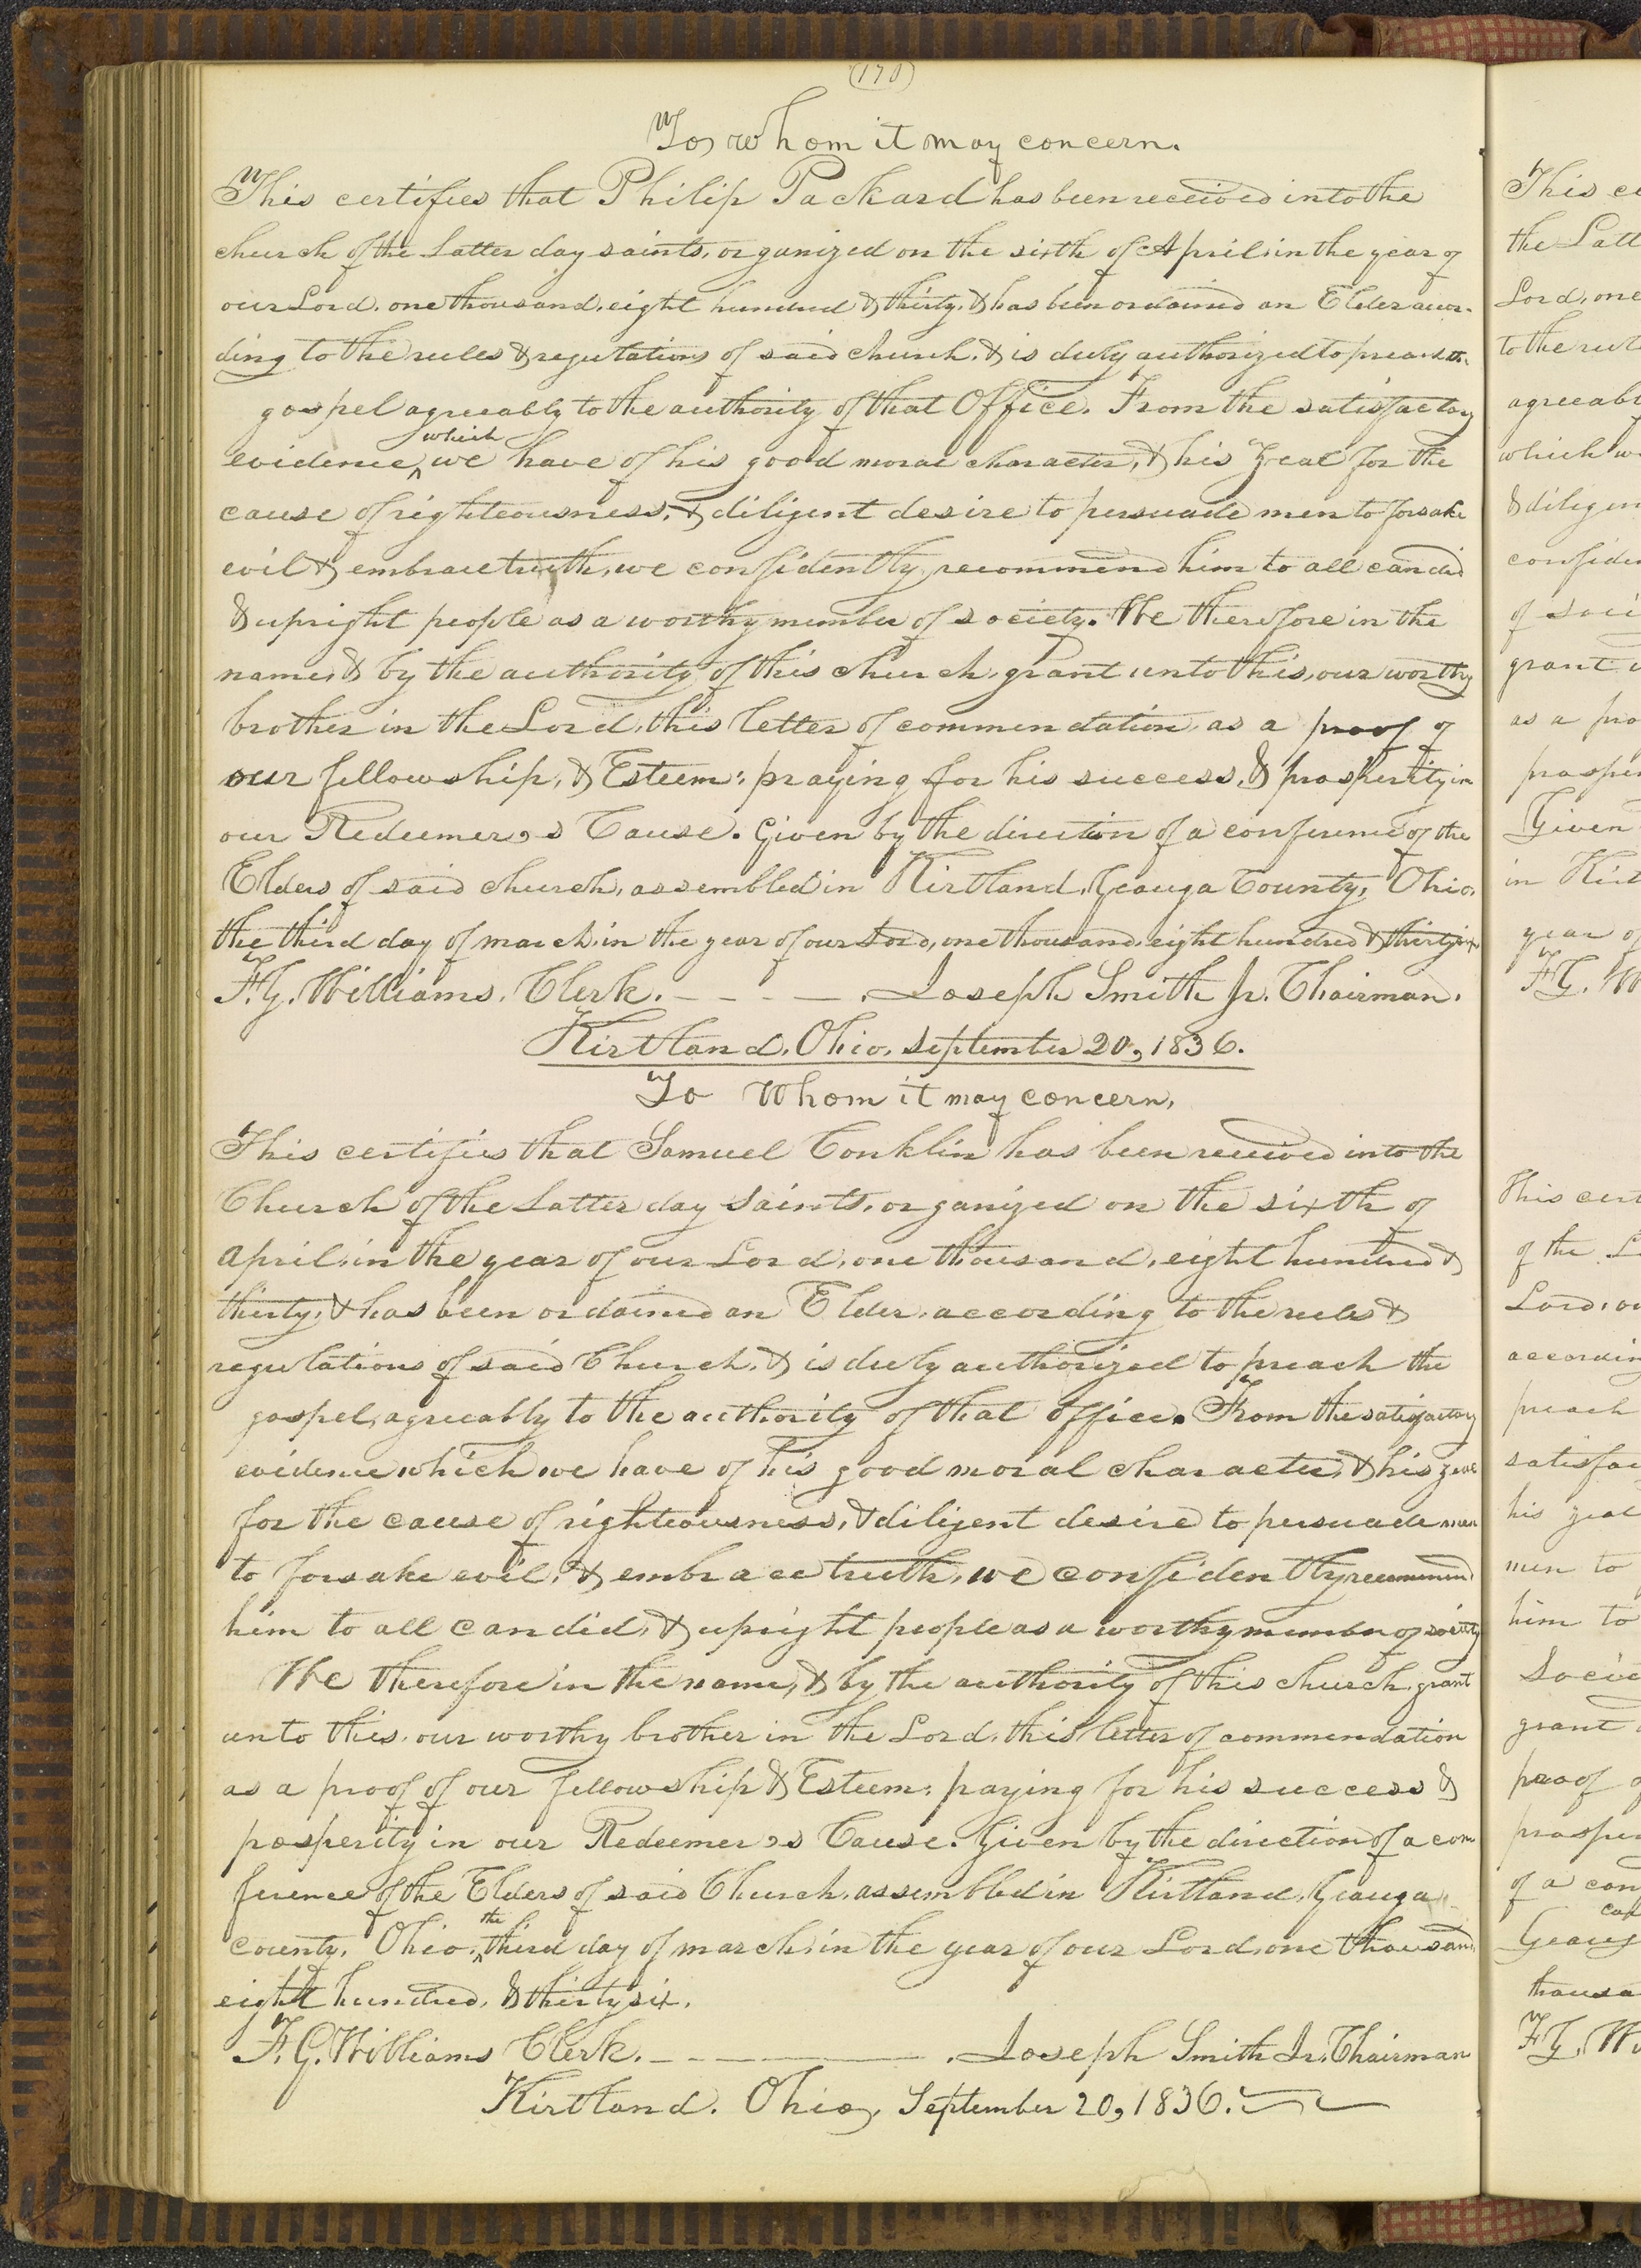 (170)
To whom it may concern.
This certifies that Philip Packard has been received into the
church of the Latter day saints, organized on the sixth of April, in the year of
our Lord, one thousand, eight hundred & thirty, & has been ordained an Elder accor-
ding to the rules & regulations of said church, & is duly authorized to preach the
gospel agreeably to the authority of that Office. From the satisfactory
evidence, which we have of his good moral character, & his zeal for the
cause of righteousness, & diligent desire to persuade men to forsake
evil & embrace truth, we confidently recommend him to all candid
& upright people as a worthy member of society. We therefore in the
name, & by the authority of this church, grant unto this, our worthy
brother in the Lord, this letter of commendation, as a proof of
our fellowship, & Esteem: praying for his success, & prosperity in
our Redeemer,s Cause. Given by the direction of a conference of the
Elders of said church, assembled in Kirtland, Geauga County, Ohio,
the third day of march, in the year of our Lord, one thousand, eight hundred & thirty six
F. G. Williams, Clerk. - - - - . Joseph Smith Jr. Chairman.
Kirtland, Ohio, September 20, 1836.
To Whom it may concern,
This certifies that Samuel Conklin has been received into the
Church of the Latter day Saints, organized on the sixth of
April, in the year of our Lord, one thousand, eight hundred &
thirty, & has been ordained an Elder, according to the rules &
regulations of said Church, & is duly authorized to preach the
gospel, agreeably to the authority of that office. From the satisfactory
evidence which we have of his good moral character, & his zeal
for the cause of righteousness, & diligent desire to persuade men
to forsake evil, & embrace truth, we confidently recommend
him to all candid, & upright people as a worthy member of society
We therefore in the name, & by the authority of this church, grant
unto this, our worthy brother in the Lord, this letter of commendation
as a proof of our fellowship & Esteem: paying for his success &
prosperity in our Redeemer,s Cause. Given by the direction of a con
ference of the Elders of said Church, assembled in Kirtland, Geauga
County, Ohio, the third day of march, in the year of our Lord, one thousand
eight hundred, & thirty six.
F. G. Williams Clerk. - - - . Joseph Smith Jr. Chairman
Kirtland, Ohio, September 20, 1836.
This ce
the Latt
Lord, one
to the rul
agreeabl
which w
& diligen
confiden
of soci
grant u
as a pro
prosper
Given
in Kirt
year of
F G. W
This cert
of the L
Lord, on
according
preach
satisfac
his zeal
men to
him to
Socie
grant
proof o
prosper
of a con
Geaug
thousa
F G. W